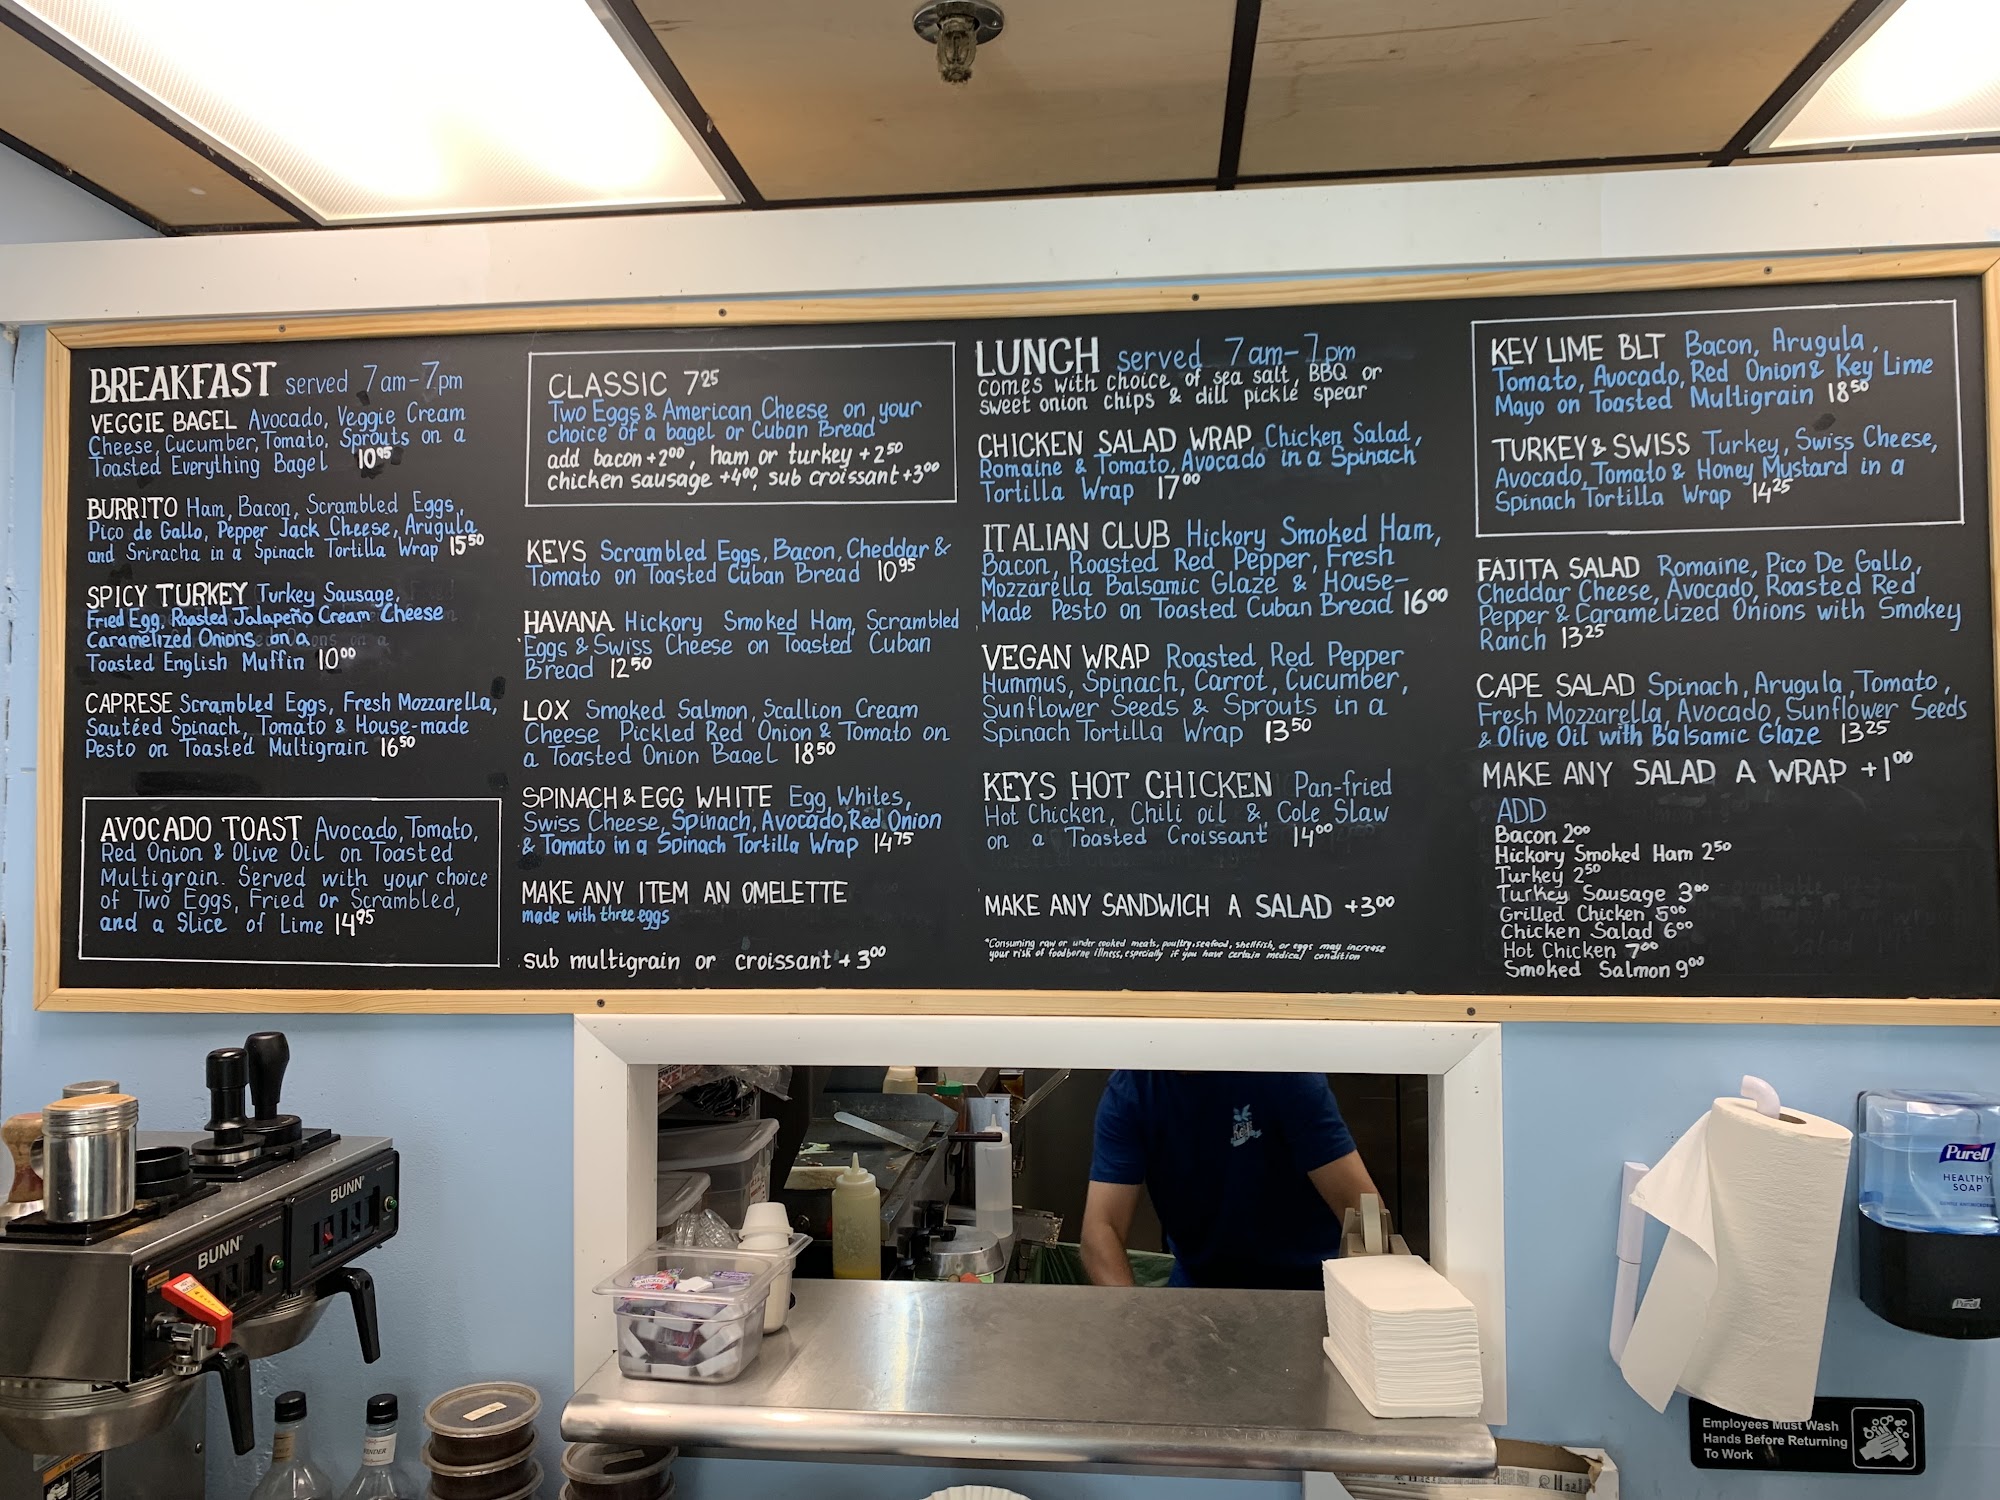 BREAKFAST served 7am-7pm
VEGGIE BAGEL Avocado, Veggie Cream
Cheese, Cucumber, Tomato, Sprouts on a
Toasted Everything Bagel 10⁹⁵
BURRITO Ham, Bacon, Scrambled Eggs,
Pico de Gallo, Pepper Jack Cheese, Arugula
and Sriracha in a Spinach Tortilla Wrap 15⁵⁰
SPICY TURKEY Turkey Sausage,
Fried Egg, Roasted Jalapeño Cream Cheese
Caramelized Onions on a
Toasted English Muffin 10⁰⁰
CAPRESE Scrambled Eggs, Fresh Mozzarella,
Sautéed Spinach, Tomato & House-made
Pesto on Toasted Multigrain 16⁵⁰
AVOCADO TOAST Avocado, Tomato,
Red Onion & Olive Oil on Toasted
Multigrain. Served with your choice
of Two Eggs, Fried or Scrambled,
and a Slice of Lime 14⁹⁵
CLASSIC 7²⁵
Two Eggs & American Cheese on your
choice of a bagel or Cuban Bread
add bacon +2⁰⁰, ham or turkey +2⁵⁰
chicken sausage +4⁰⁰, sub croissant +3⁰⁰
KEYS Scrambled Eggs, Bacon, Cheddar &
Tomato on Toasted Cuban Bread 10⁹⁵
HAVANA Hickory Smoked Ham, Scrambled
Eggs & Swiss Cheese on Toasted Cuban
Bread 12⁵⁰
LOX Smoked Salmon, Scallion Cream
Cheese Pickled Red Onion & Tomato on
a Toasted Onion Bagel 18⁵⁰
SPINACH & EGG WHITE Egg Whites,
Swiss Cheese, Spinach, Avocado, Red Onion
& Tomato in a Spinach Tortilla Wrap 14⁷⁵
MAKE ANY ITEM AN OMELETTE
made with three eggs
sub multigrain or croissant + 3⁰⁰
LUNCH served 7am-7pm
comes with choice of sea salt, BBQ or
sweet onion chips & dill pickle spear
CHICKEN SALAD WRAP Chicken Salad,
Romaine & Tomato, Avocado in a Spinach
Tortilla Wrap 17⁰⁰
ITALIAN CLUB Hickory Smoked Ham,
Bacon, Roasted Red Pepper, Fresh
Mozzarella Balsamic Glaze & House-
Made Pesto on Toasted Cuban Bread 16⁰⁰
VEGAN WRAP Roasted Red Pepper
Hummus, Spinach, Carrot, Cucumber,
Sunflower Seeds & Sprouts in a
Spinach Tortilla Wrap 13⁵⁰
KEYS HOT CHICKEN Pan-fried
Hot Chicken, Chili oil & Cole Slaw
on a Toasted Croissant 14⁰⁰
MAKE ANY SANDWICH A SALAD +3⁰⁰
*Consuming raw or under cooked meats, poultry, seafood, shellfish, or eggs may increase
your risk of foodborne illness, especially if you have certain medical condition
KEY LIME BLT Bacon, Arugula,
Tomato, Avocado, Red Onion & Key Lime
Mayo on Toasted Multigrain 18⁵⁰
TURKEY & SWISS Turkey, Swiss Cheese,
Avocado, Tomato & Honey Mustard in a
Spinach Tortilla Wrap 14²⁵
FAJITA SALAD Romaine, Pico De Gallo,
Cheddar Cheese, Avocado, Roasted Red
Pepper & Caramelized Onions with Smokey
Ranch 13²⁵
CAPE SALAD Spinach, Arugula, Tomato,
Fresh Mozzarella, Avocado, Sunflower Seeds
& Olive Oil with Balsamic Glaze 13²⁵
MAKE ANY SALAD A WRAP +1⁰⁰
ADD
Bacon 2⁰⁰
Hickory Smoked Ham 2⁵⁰
Turkey 2⁵⁰
Turkey Sausage 3⁰⁰
Grilled Chicken 5⁰⁰
Chicken Salad 6⁰⁰
Hot Chicken 7⁰⁰
Smoked Salmon 9⁰⁰
BUNN
BUNN
Purell
HEALTHY
SOAP
Purell
Employees Must Wash
Hands Before Returning
To Work